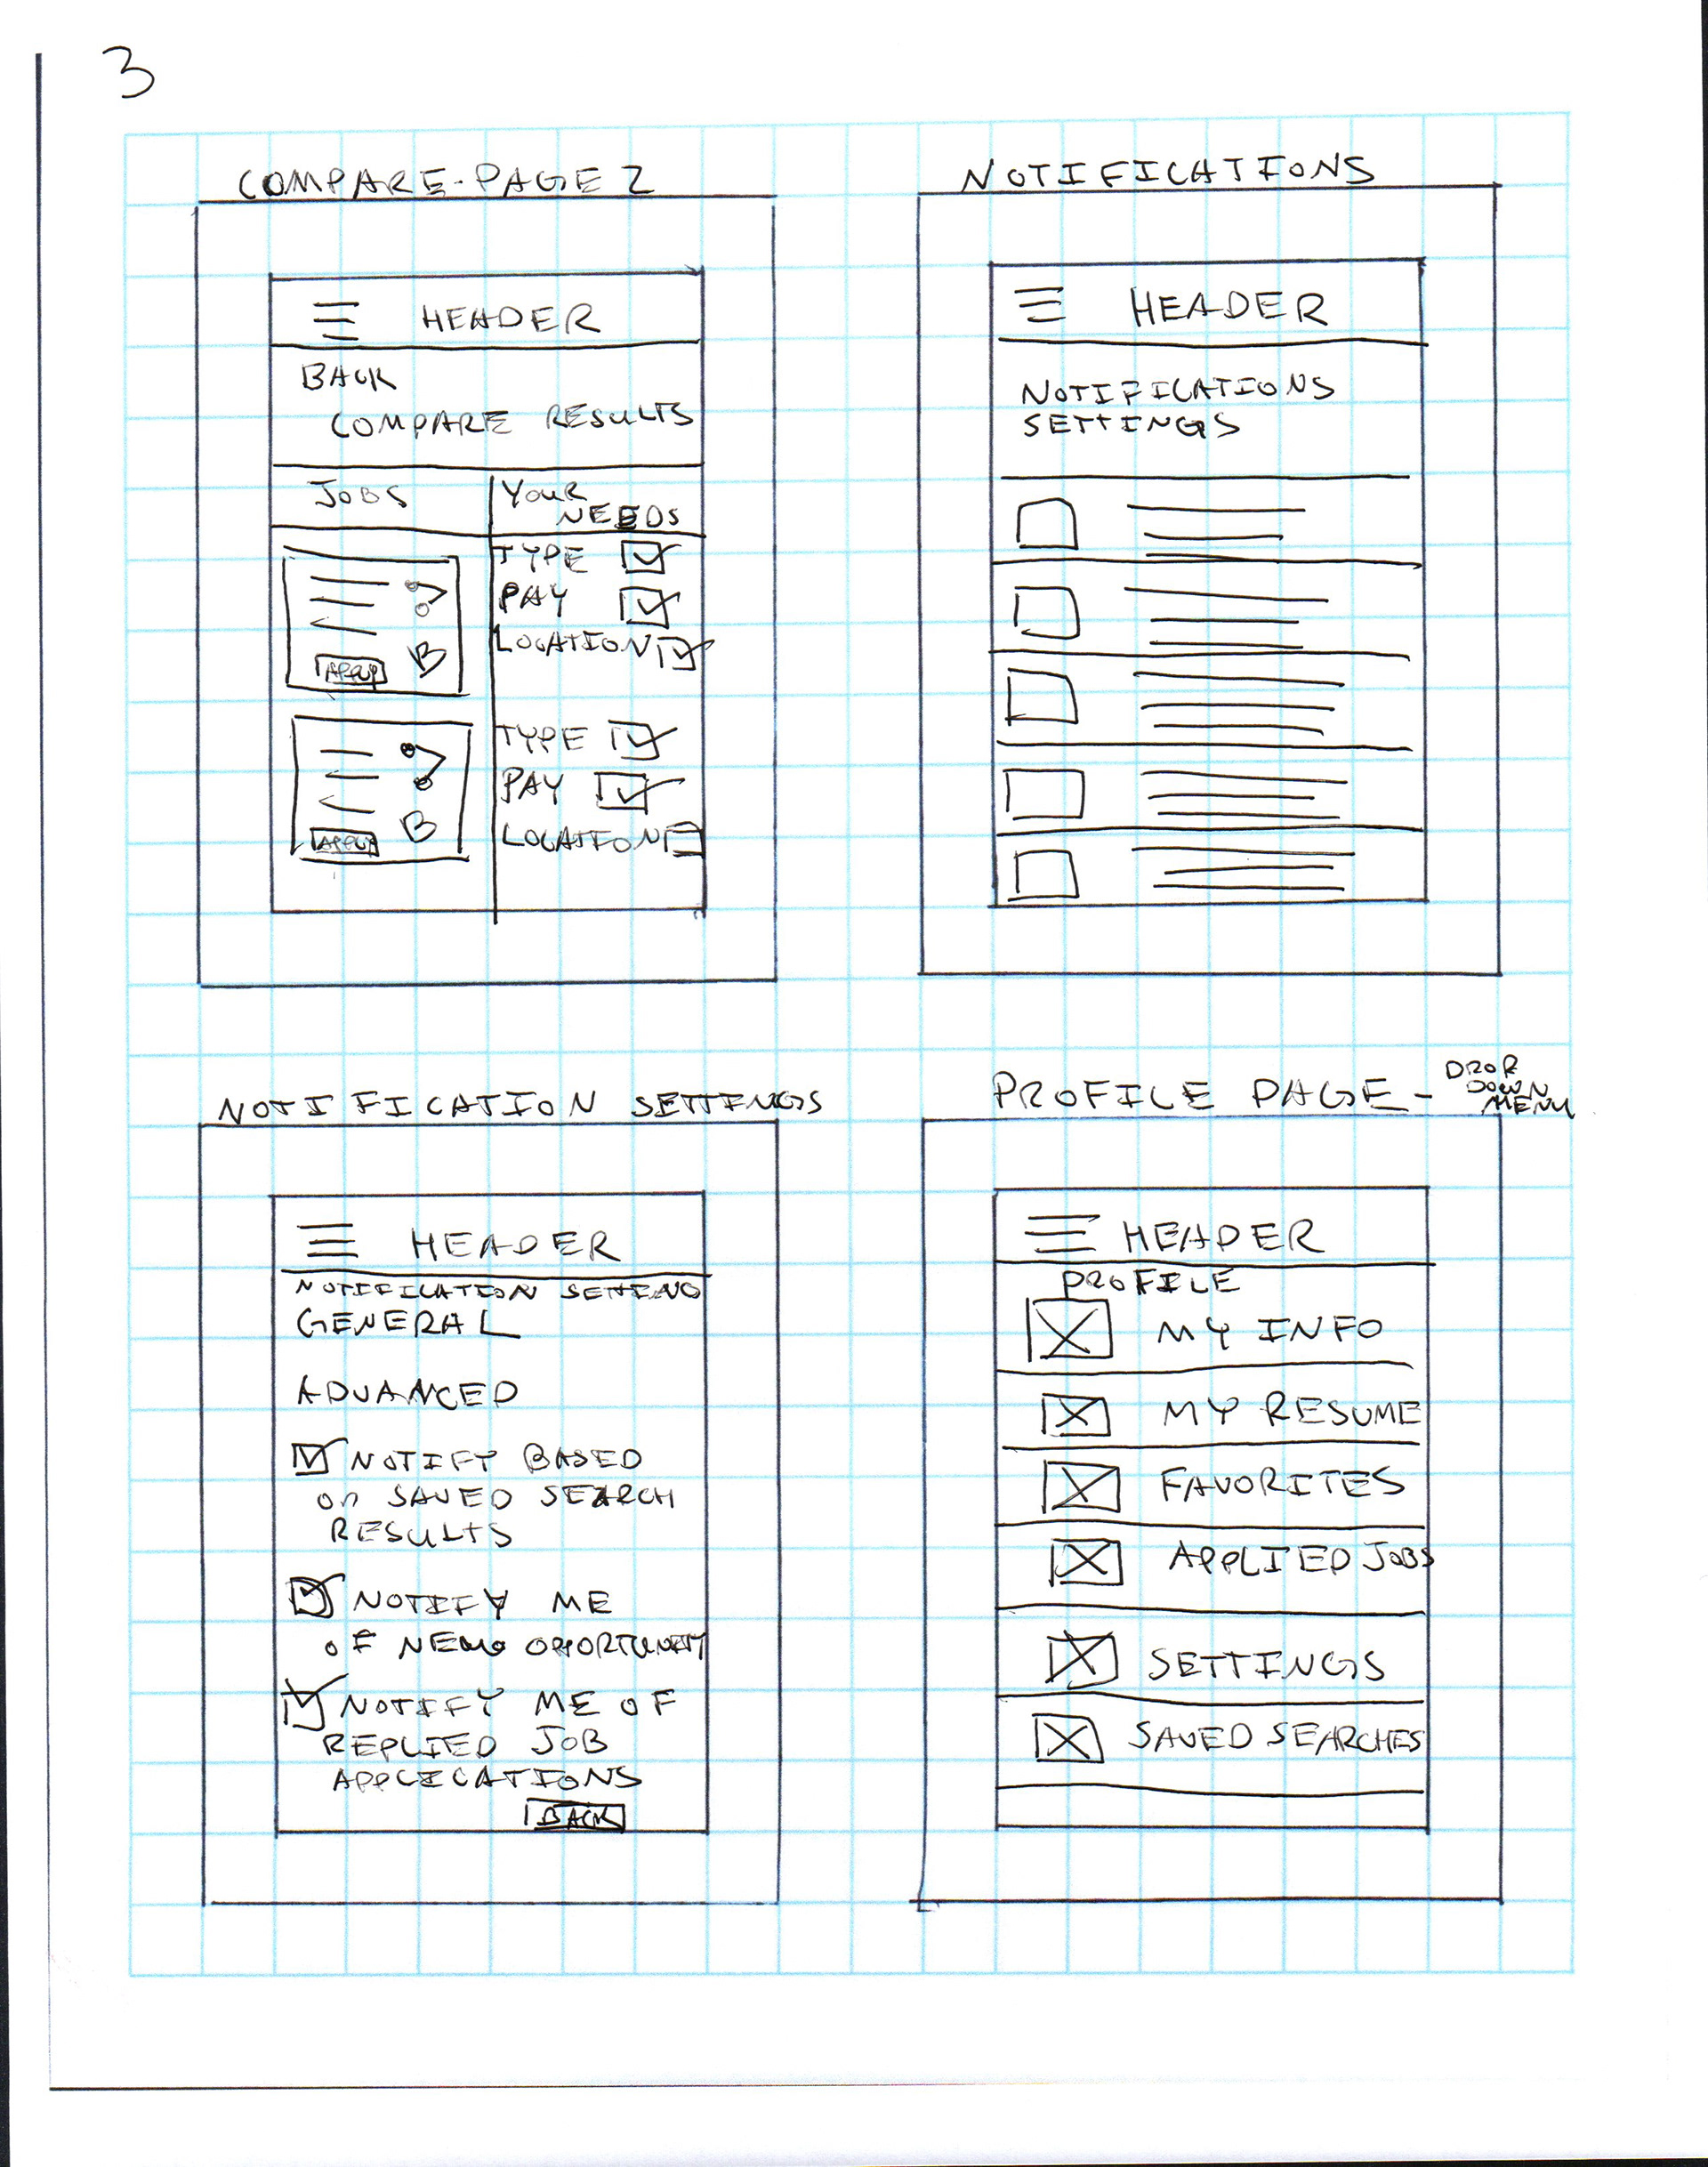 3
COMPARE-PAGE 2
HEADER
BACK
COMPARE RESULTS
JOBS
YOUR
NEEDS
TYPE
PAY
LOCATION
APPLY
TYPE
PAY
LOCATION
APPLY
NOTIFICATIONS
HEADER
NOTIFICATIONS
SETTINGS
NOTIFICATION SETTINGS
HEADER
NOTIFICATION SETTING
GENERAL
ADVANCED
NOTIFY BASED
on SAVED SEARCH
RESULTS
NOTIFY ME
OF NEW OPPORTUNITY
NOTIFY ME OF
REPLIED JOB
APPLICATIONS
BACK
PROFILE PAGE - DROP
DOWN
MENU
HEADER
PROFILE
MY INFO
MY RESUME
FAVORITES
APPLIED JOBS
SETTINGS
SAVED SEARCHES